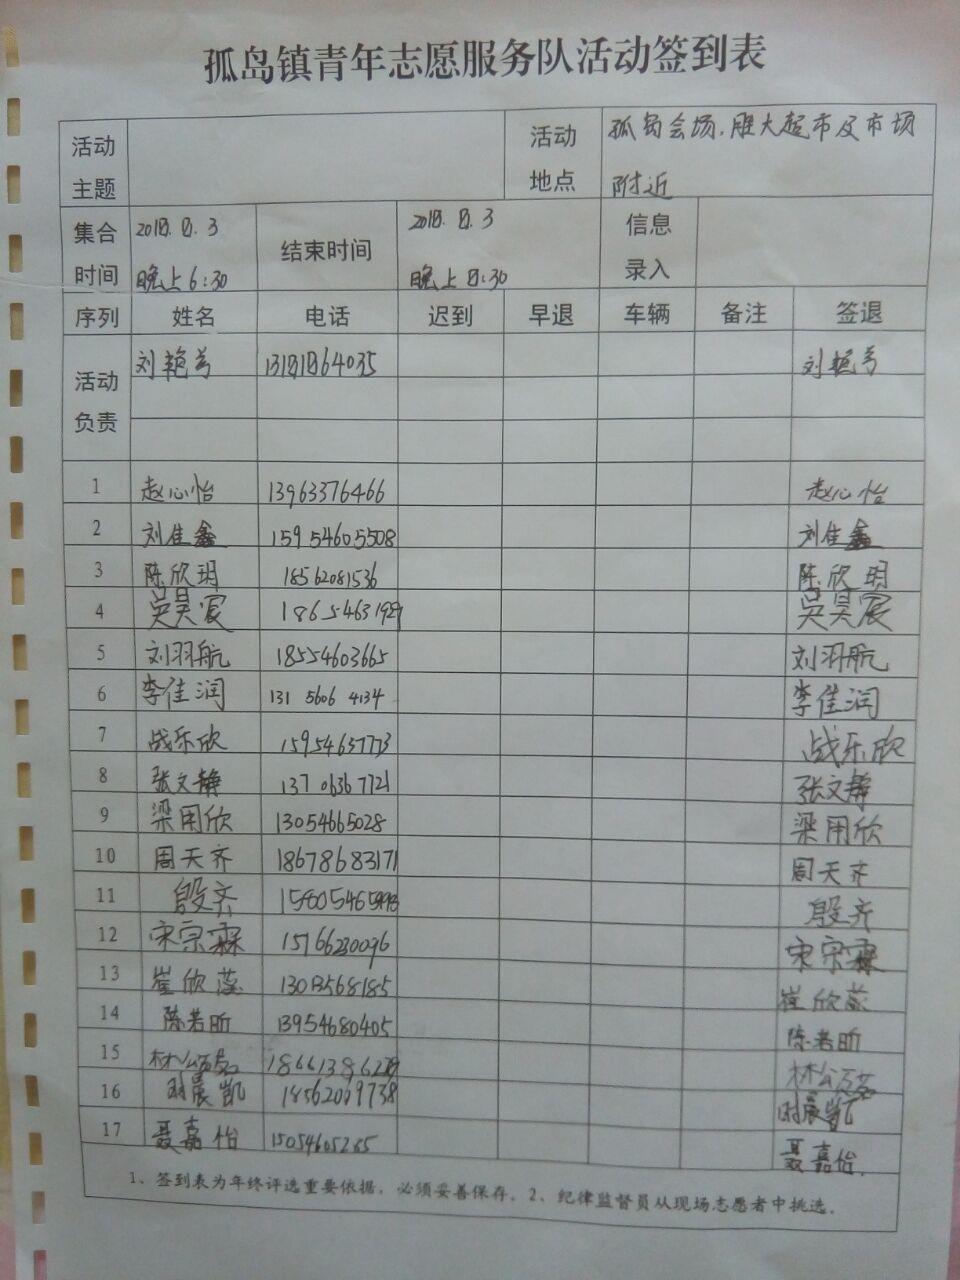 孤岛镇青年志愿服务队活动签到表
活动主题 活动地点 孤岛会场.胜大超市及市场附近
集合时间 2018.8.3 晚上6:30 结束时间 2018.8.3 晚上8:30 信息录入
序列 姓名 电话 迟到 早退 车辆 备注 签退
活动负责 刘艳芳 13181864035 刘艳芳
1 赵心怡 13963376466 赵心怡
2 刘佳鑫 15954605508 刘佳鑫
3 陈欣玥 18562081536 陈欣玥
4 吴昊宸 吴昊宸
5 刘羽航 18554603665 刘羽航
6 李佳润 131 5606 4134 李佳润
7 战乐欣 15954637773 战乐欣
8 张文静 137 0636 7721 张文静
9 梁用欣 13054665028 梁用欣
10 周天齐 18678683171 周天齐
11 殷齐 殷齐
12 宋宗霖 15766230096 宋宗霖
13 崔欣蕊 崔欣蕊
14 陈若昕 13954680405 陈若昕
15
16 时晨凯 18562069738 时晨凯
17 聂嘉怡 15054605265 聂嘉怡.
1、签到表为年终评选重要依据，必须妥善保存。2、纪律监督员从现场志愿者中挑选。